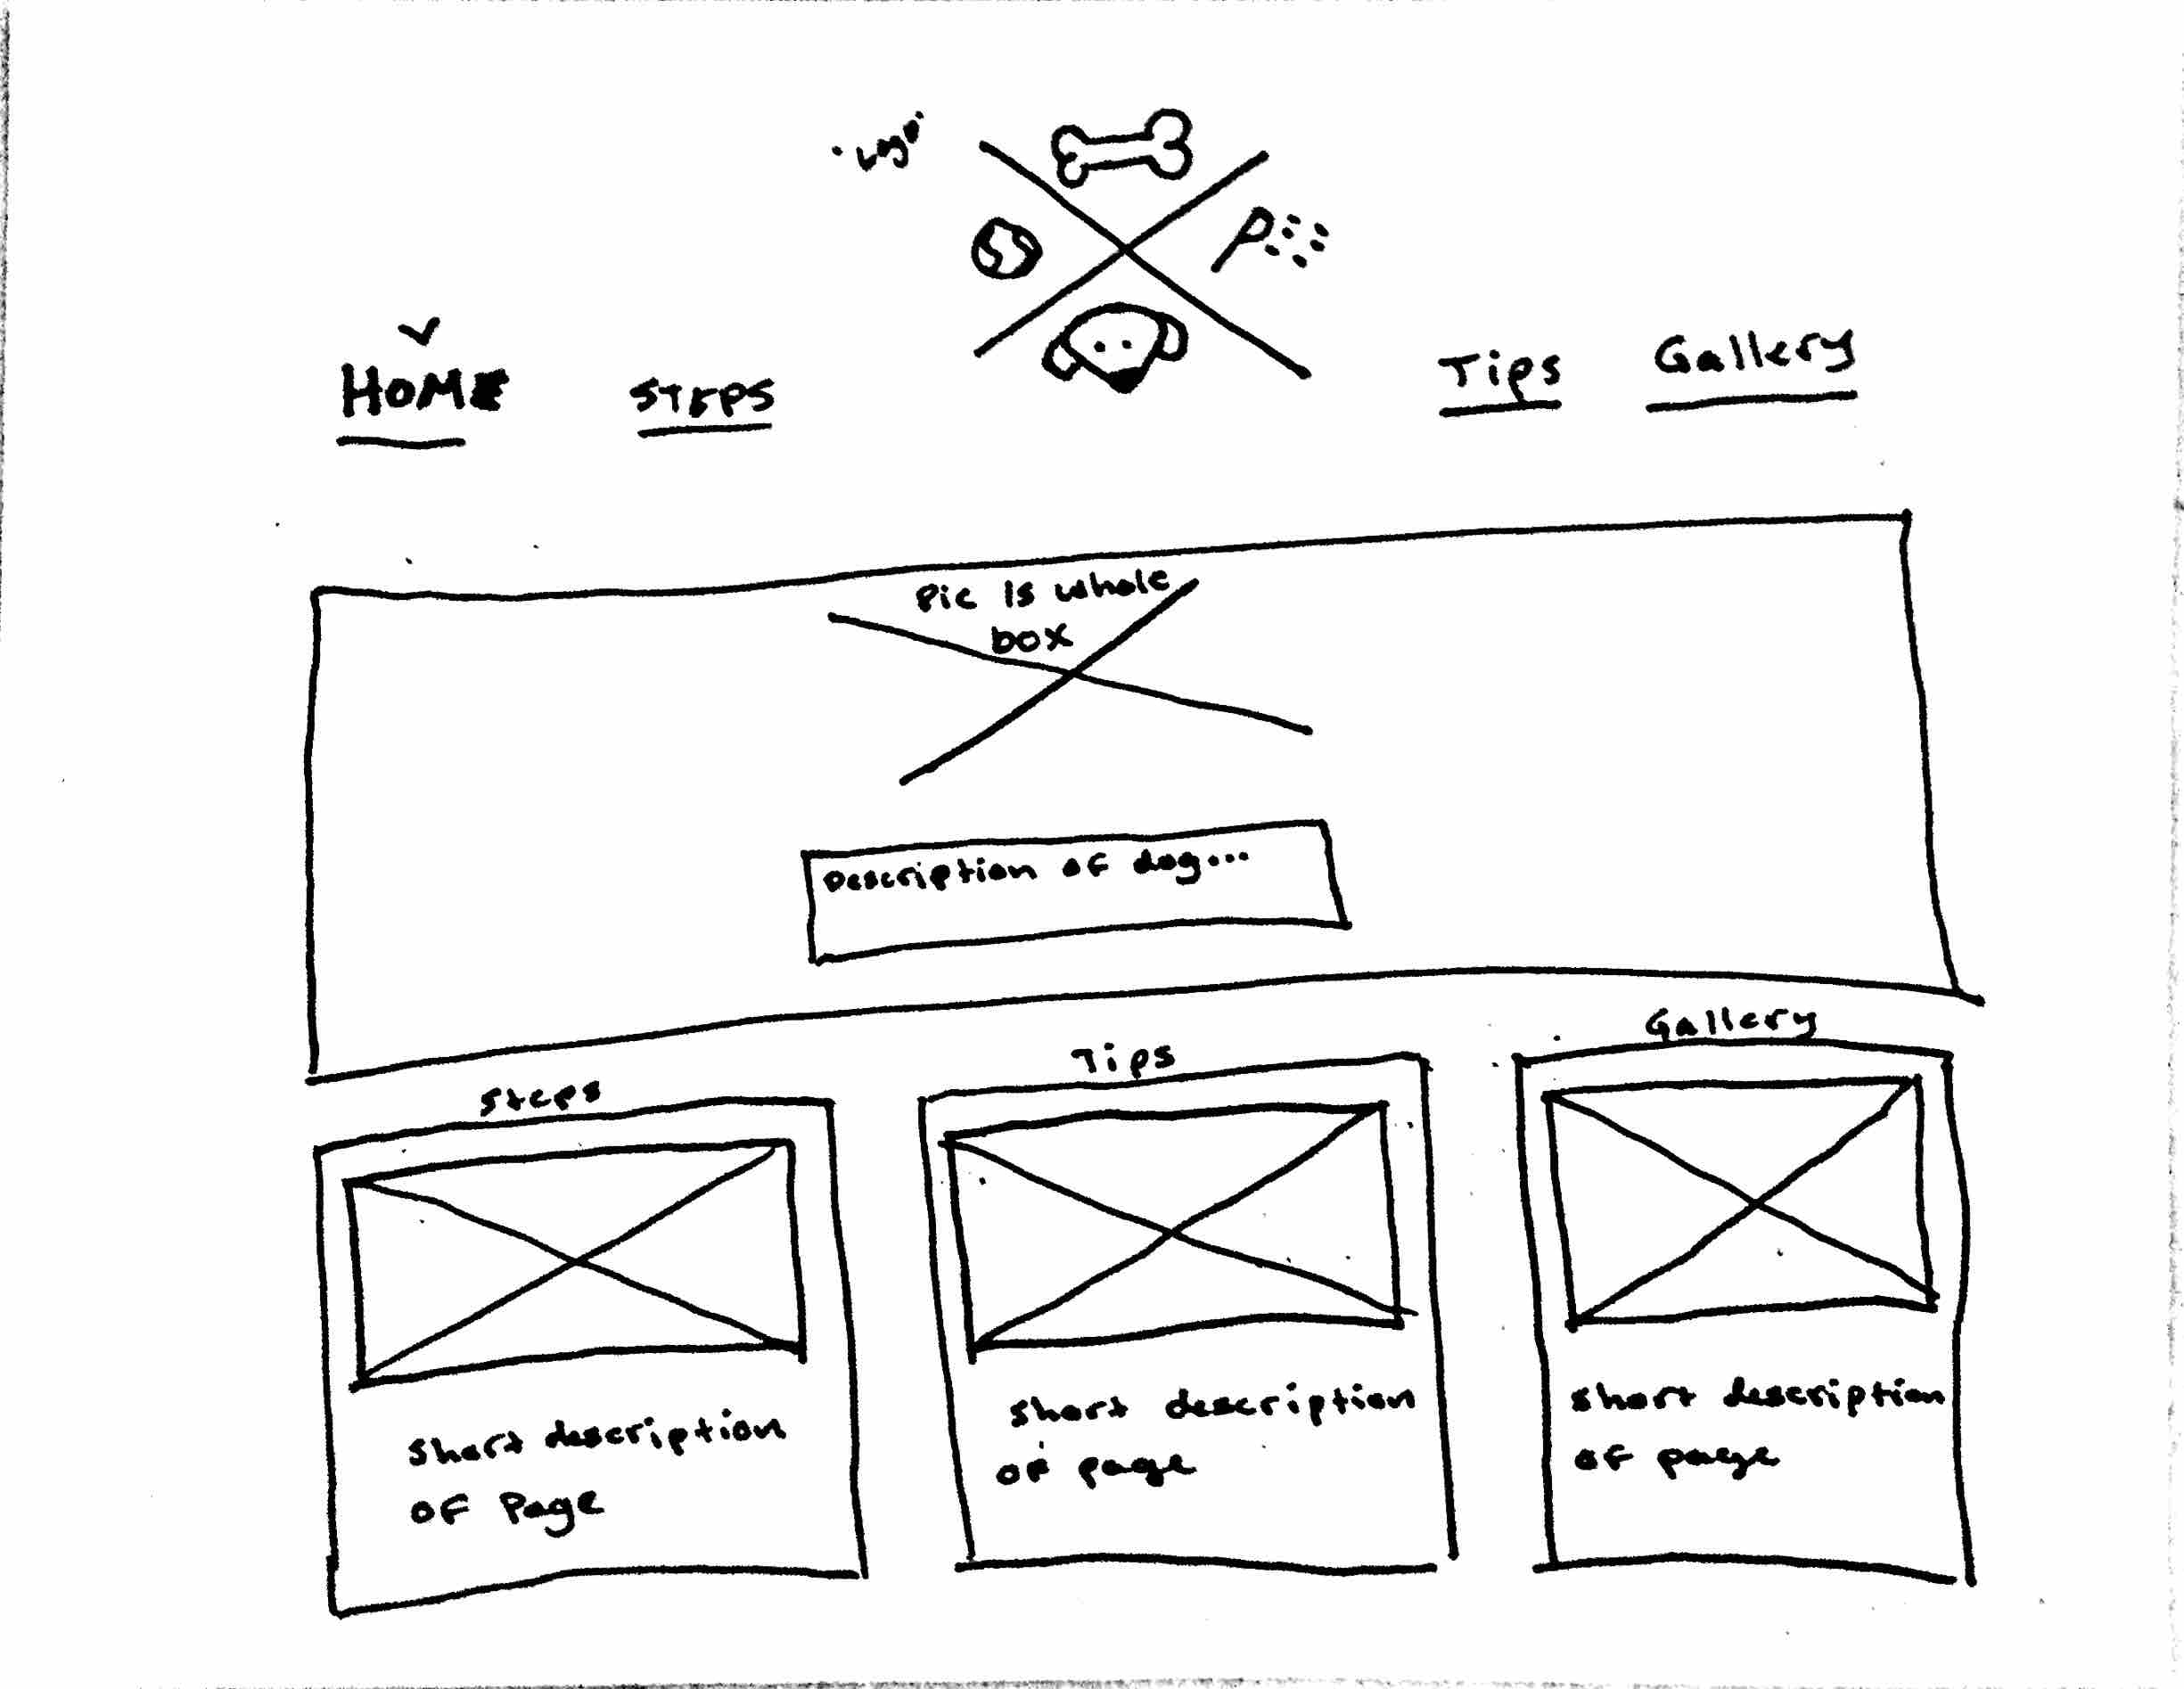 HOME
STEPS
Tips
Gallery
Pic Is whole
box
Description of dog...
Steps
Tips
Gallery
Short description
of Page
short description
of page
short description
of page